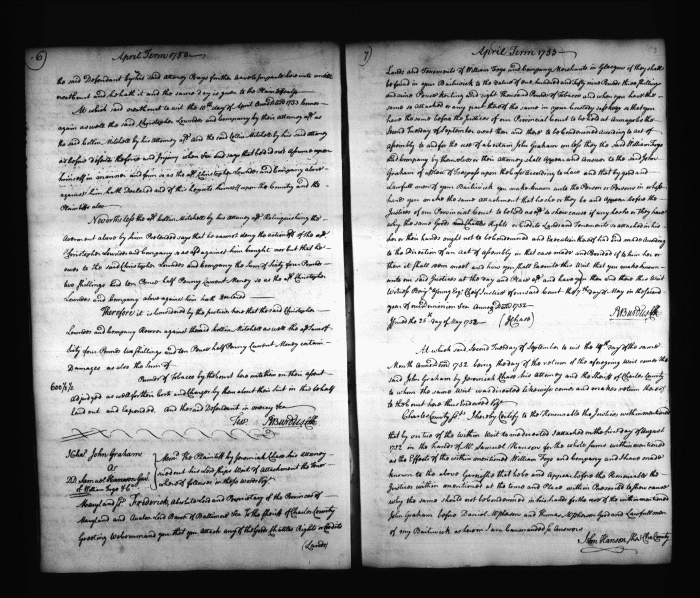 6
April Term 1753
the said Defendant by his said Attorney Prays further
and to him it is and the same day is given to the Plaintiffs also
At which said to wit the 10th day of April Anno Dom 1753 comes
again as well the said Christopher Lowndes and Company by their attorney afd as
the said Cotten Mitchell by his attorney afd and the said Cotten Mitchell by his said attorney
as before defends the force and Injury when &ca and says that he did not Assume upon
himself in manner and form as the afd Christopher Lowndes and Company above
against him hath Declared and of this he puts himself upon the Country and the
Plaintiffs also
Nevertheless the afd Mitchell by his attorney afd Relinquishing the
Averment above by him Pretended says that he cannot deny the action afd of the afd
Christopher Lowndes and Company as afd against him brought nor but that he
owes to the said Christopher Lowndes and Company the Sum of Sixty four Pounds
two shillings and ten Pence half Penny Current Money as the afd Christopher
Lowndes and Company above against him hath Declared
Therefore it is Considered by the Justices here that the said Christopher
Lowndes and Company Recover against the said Mitchell as well the afd Sum of
Sixty four Pounds two shillings and ten Pence half Penny Current Money
Damages as also the Sum of
600
Pounds of Tobacco by the Court here unto them on their assent
adjudged as well for their Costs and Charges by them about their Suit in this behalf
laid out and expended. And the said Defendant in mercy &ca
Test
John Graham
as
Samuel Hanson
of William Fogo & Co
Memo the Plaintiff by Jeremiah Chase his attorney
sued out his Lordships Writ of Attachment the Tenor
whereof follows in these words to wit
Maryland Frederick Absolute Lord and Proprietary of the Province of
Maryland and Avalon Lord Baron of Baltimore &ca To the Sheriff of Charles County
Greeting We command you that you Attach any of the Goods Chattles Rights or Credits
(Lands
7
April Term 1753
Lands and Tenements of William Fogo and Company Merchants in Glasgow if they shall
be found in your Bailiwick to the value of one hundred and fifty nine Pounds three shillings
and nine Pence Sterling and Eight thousand Pounds of Tobacco and when you have the
same so attached or any part thereof the same in your Custody safe keep so that you
have the same before the Justices of our Provincial Court to be held at Annapolis the
Second Tuesday of September next then and there to be condemned according to act of
Assembly to and for the use of a certain John Graham unless they the said William Fogo
and Company by themselves or their attorney shall appear and Answer to the said John
Graham of a Plea of Trespass upon the Case According to Law and that by good and
Lawfull men of your Bailiwick you make known unto the Person or Persons in whose
hands you make the same Attachment that he she or they be and Appear before the
Justices of our Provincial Court to be held as afd to shew cause if any he she or they have
why the same Goods and Chattles Rights or Credits Lands and Tenements so attached in his
her or their hands ought not to be condemned and Execution thereof had and made according
to the Direction of an act of Assembly in that case made and Provided
then it shall seem most and how you shall Execute this Writ that you make known
unto our said Justices at the day and Place afd and have you then and there this Writ
Witness Benja Young Esqr Chief Justice of our said Court the 7th day of May in the second
year of our dominion &ca Anno Dom 1752
Issued the 21st day of May 1752 (JChase)
At which said Second Tuesday of September to wit the 14th day of the same
Month Anno Dom 1752 being the day of the return of the aforegoing Writ comes the
said John Graham by Jeremiah Chase his attorney and the Sheriff of Charles County
to whom the same Writ was directed likewise comes and makes return thereof
to the Court here thus Endorsed to wit
Charles County Sst I hereby Certify to the Honourable the Justices within mentioned
that by virtue of the within Writ to me directed I attached on the first day of August
1752 in the hands of Mr Samuel Hanson for the whole sum within mentioned
as the Effects of the within mentioned William Fogo and Company and I have made
known to the above Garnishee that he be and Appear before the Honourable the
Justices within mentioned at the time and Place within Prescribed to shew cause
why the same should not be condemned in his hands for the use of the within mentioned
John Graham before Daniel McPherson and Thomas McPherson Good and Lawfull men
of my Bailiwick as whom I am Commanded So Answers
John Hanson Sher Cha County